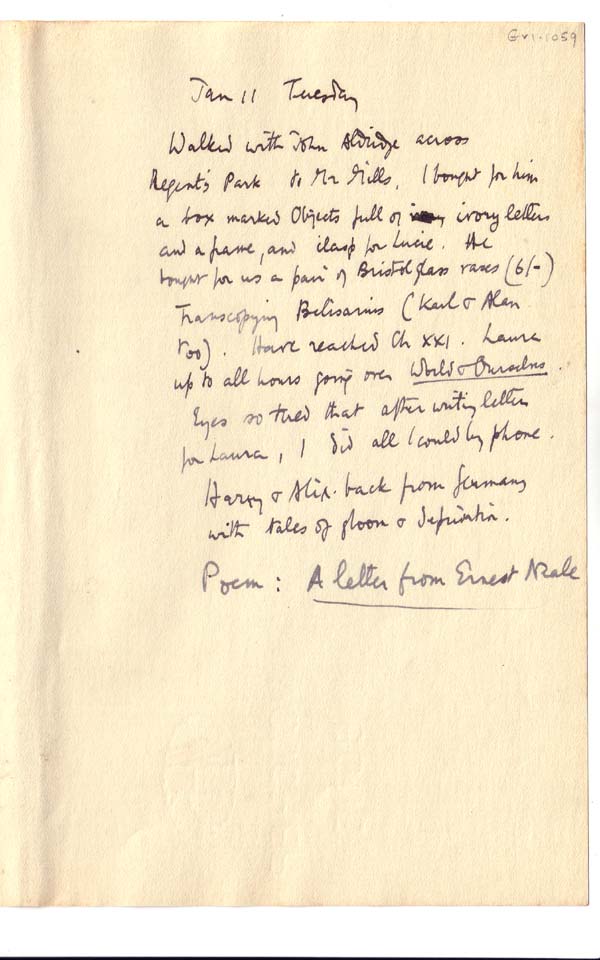 GV1.1059
Jan 11 Tuesday
Walked with John Aldridge across
Regent's Park to Mr Mills. I bought for him
a box marked Objects full of ivory letters
and a frame, and clasp for Lucie. He
bought for us a pair of Bristol glass vases (6/-)
Transcopying Belisarius (Karl & Alan
too). Have reached Ch XXI. Laura
up to all hours going over World & Ourselves.
Eyes so tired that after writing letters
for Laura, I did all I could by phone.
Harry & Alix back from Germany
with tales of gloom & deprivation.
Poem: A letter from Ernest Neale